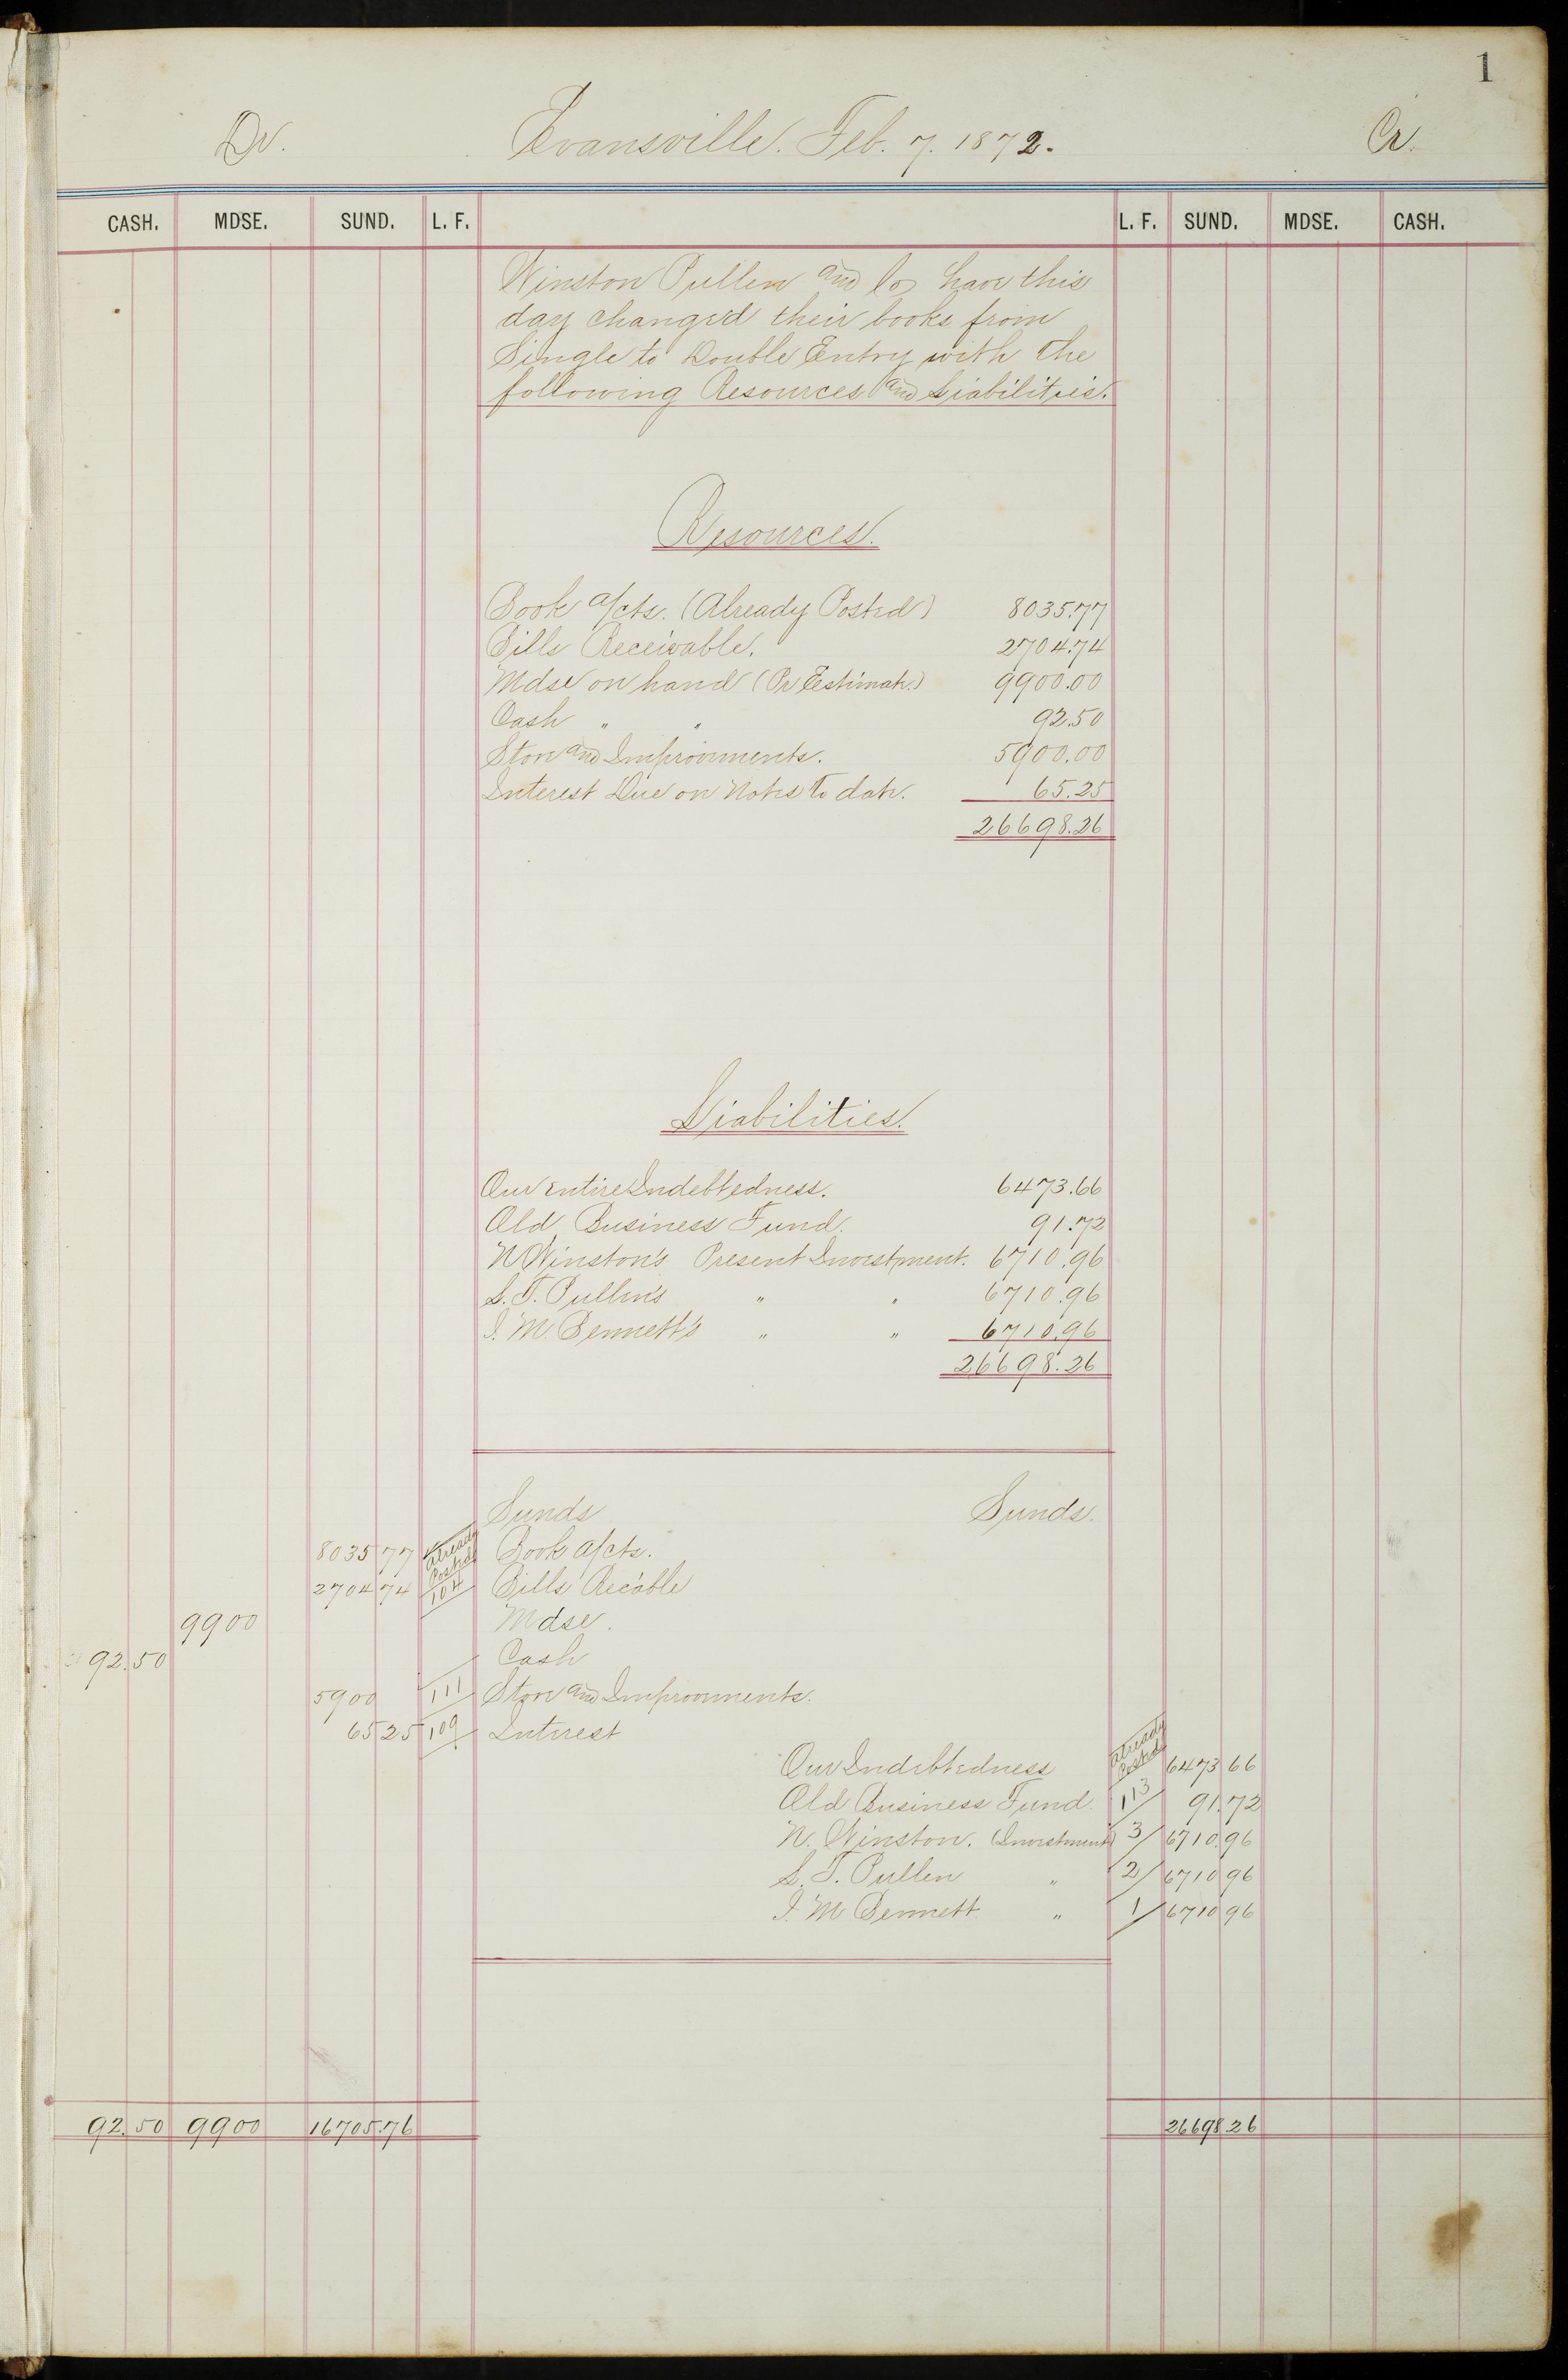 1
Dr. Evansville. Feb. 7. 1872. Cr.
CASH. MDSE. SUND. L. F. L. F. SUND. MDSE. CASH.
Winston Pullen and Co have this
day changed their books from
Single to Double Entry with the
following Resources and Liabilities.
Resources.
Book a/cts. (Already Posted) 8035.77
Bills Receivable. 2704.74
Mdse on hand (Pr Eestimate.) 9900.00
Cash " " 92.50
Store and Improvements. 5900.00
Interest Due on Notes to date. 65.25
26698.26
Liabilities.
Our entire Indebtedness. 6473.66
Old Business Fund. 91.72
N Winston's Present Investment. 6710.96
S. T. Pullen's " " 6710.96
I. M. Bennett's " " 6710.96
26698.26
Sunds Sunds.
8035 77 Already Posted Book a/cts.
2704 74 104 Bills Rec'able
9900 Mdse.
92.50 Cash
5900 111 Store and Improvements.
65 25 109 Interest
Our Indebtedness Already Posted 6473 66
Old Business Fund. 113 91.72
N. Winston. (Investment) 3 6710.96
S. T. Pullen " 2 6710 96
I. M Bennett. " 1 6710 96
92.50 9900 16705.76 26698 26